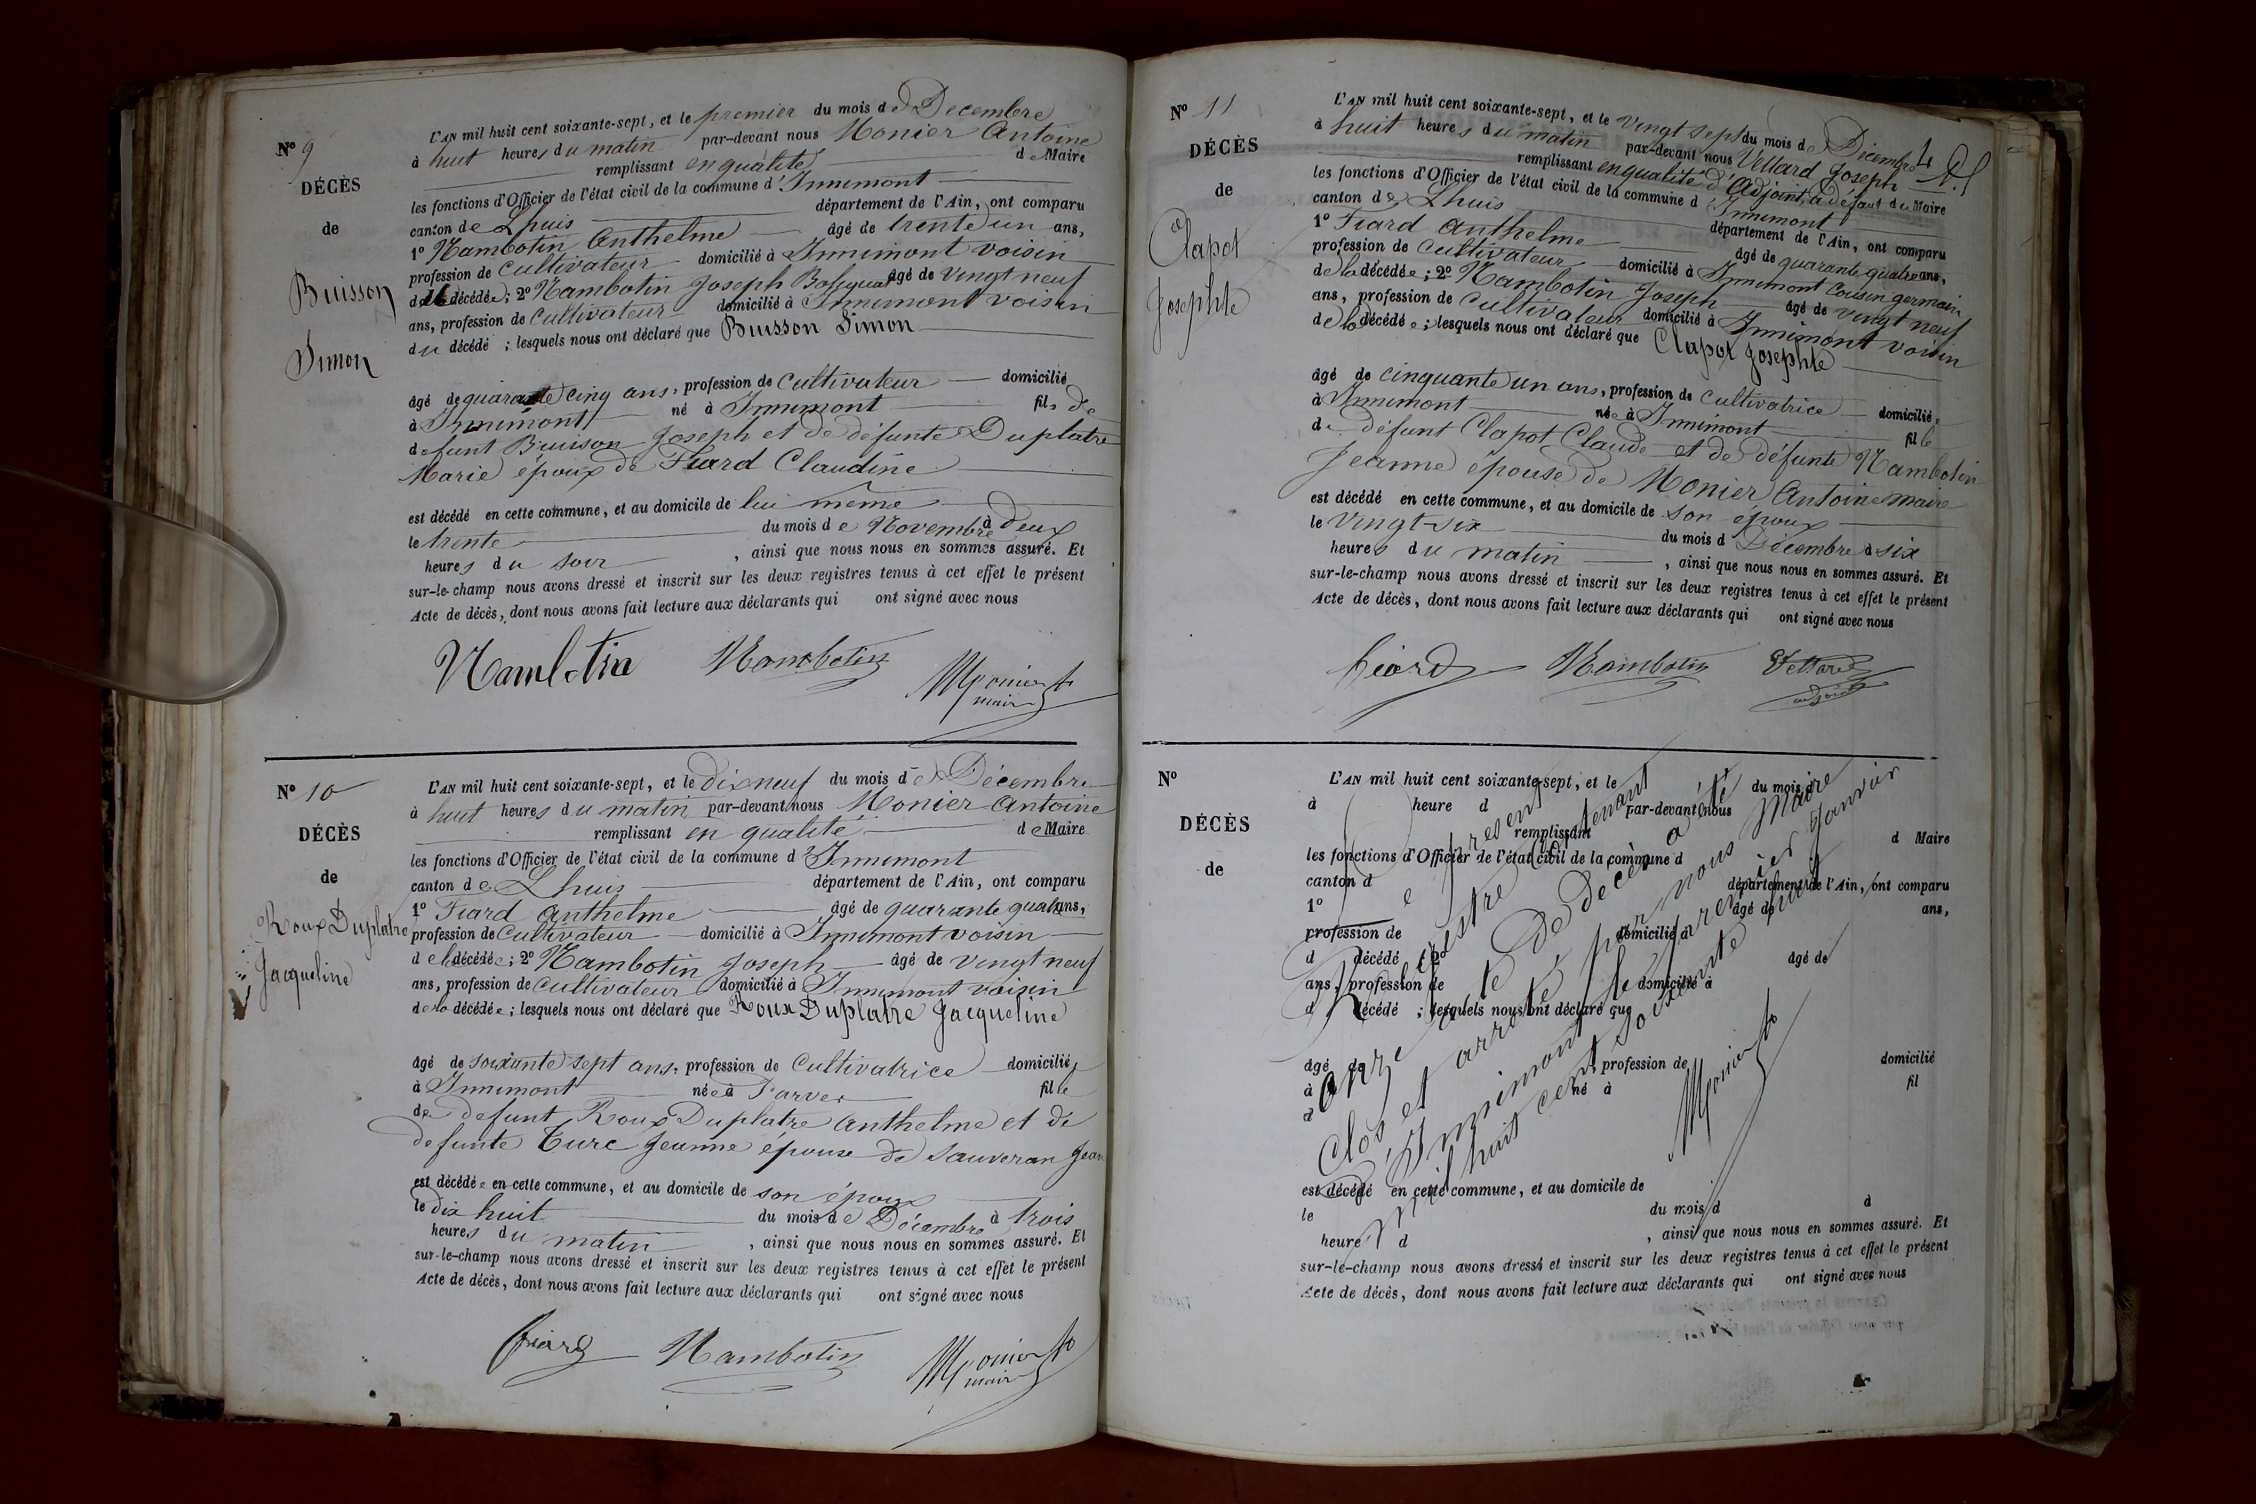 Nº 9
DÉCÈS
de
Buisson
Simon
L'AN mil huit cent soixante-sept, et le premier du mois de Décembre
à huit heures du matin par-devant nous Monier Antoine
remplissant en qualité de Maire
les fonctions d'Officier de l'état civil de la commune d'Innimont
canton de Lhuis département de l'Ain, ont comparu
1º Nambotin Anthelme âgé de trente un ans,
profession de cultivateur domicilié à Innimont voisin
du décédé ; 2º Nambotin Joseph âgé de vingt neuf
ans, profession de cultivateur domicilié à Innimont voisin
du décédé ; lesquels nous ont déclaré que Buisson Simon
âgé de quarante cinq ans, profession de cultivateur domicilié
à Innimont né à Innimont fils de
defunt Buisson Joseph et de défunte Duplatre
Marie époux de Fiard Claudine
est décédé en cette commune, et au domicile de lui même
le trente du mois de Novembre à deux
heures du soir , ainsi que nous nous en sommes assuré. Et
sur-le-champ nous avons dressé et inscrit sur les deux registres tenus à cet effet le présent
Acte de décès, dont nous avons fait lecture aux déclarants qui ont signé avec nous
Nambotin Nambotin Monier
maire
Nº 10
DÉCÈS
de
Roux Duplatre
Jacqueline
L'AN mil huit cent soixante-sept, et le dix neuf du mois de Décembre
à huit heures du matin par-devant nous Monier Antoine
remplissant en qualité de Maire
les fonctions d'Officier de l'état civil de la commune d'Innimont
canton de Lhuis département de l'Ain, ont comparu
1º Fiard Anthelme âgé de quarante quatre ans,
profession de cultivateur domicilié à Innimont voisin
de la décédée ; 2º Nambotin Joseph âgé de vingt neuf
ans, profession de cultivateur domicilié à Innimont voisin
de la décédée ; lesquels nous ont déclaré que Roux Duplatre Jacqueline
âgé de soixante sept ans, profession de cultivatrice domiciliée
à Innimont née à fille
de defunt Roux Duplatre Anthelme et de
defunte Turc Jeanne épouse de Sauveran Jean
est décédée en cette commune, et au domicile de son époux
le dix huit du mois de Décembre à trois
heures du matin , ainsi que nous nous en sommes assuré. Et
sur-le-champ nous avons dressé et inscrit sur les deux registres tenus à cet effet le présent
Acte de décès, dont nous avons fait lecture aux déclarants qui ont signé avec nous
Fiard Nambotin Monier
maire
Nº 11
DÉCÈS
de
Clapot
Josephte
L'AN mil huit cent soixante-sept, et le vingt sept du mois de Décembre
à huit heures du matin par-devant nous Vettard Joseph
remplissant en qualité d'Adjoint, à défaut du Maire
les fonctions d'Officier de l'état civil de la commune d'Innimont
canton de Lhuis département de l'Ain, ont comparu
1º Fiard Anthelme âgé de quarante quatre ans,
profession de cultivateur domicilié à Innimont cousin germain
de la décédée ; 2º Nambotin Joseph âgé de vingt neuf
ans, profession de cultivateur domicilié à Innimont voisin
de la décédée ; lesquels nous ont déclaré que Clapot Josephte
âgé de cinquante un ans, profession de cultivatrice domiciliée
à Innimont née à Innimont fille
de défunt Clapot Claude et de défunte Nambotin
Jeanne épouse de Monier Antoine maire
est décédé en cette commune, et au domicile de son époux
le vingt-six du mois d Décembre à six
heures du matin , ainsi que nous nous en sommes assuré. Et
sur-le-champ nous avons dressé et inscrit sur les deux registres tenus à cet effet le présent
Acte de décès, dont nous avons fait lecture aux déclarants qui ont signé avec nous
Fiard Nambotin Vettard
adjoint
Nº
DÉCÈS
de
L'AN mil huit cent soixante-sept, et le du mois d
à heure d par-devant nous
remplissant d Maire
les fonctions d'Officier de l'état civil de la commune d
canton d département de l'Ain, ont comparu
1º âgé de ans,
profession de domicilié à
d décédé ; 2º âgé de
ans, profession de domicilié à
d décédé ; lesquels nous ont déclaré que
âgé de , profession de domicilié
à né à fil
d
est décédé en cette commune, et au domicile de
le du mois d à
heure d , ainsi que nous nous en sommes assuré. Et
sur-le-champ nous avons dressé et inscrit sur les deux registres tenus à cet effet le présent
Acte de décès, dont nous avons fait lecture aux déclarants qui ont signé avec nous
Le présent
Registre contenant
onze actes de décès a été
clos et arrêté par nous Maire
d'Innimont le premier Janvier
mil huit cent soixante huit
Monier